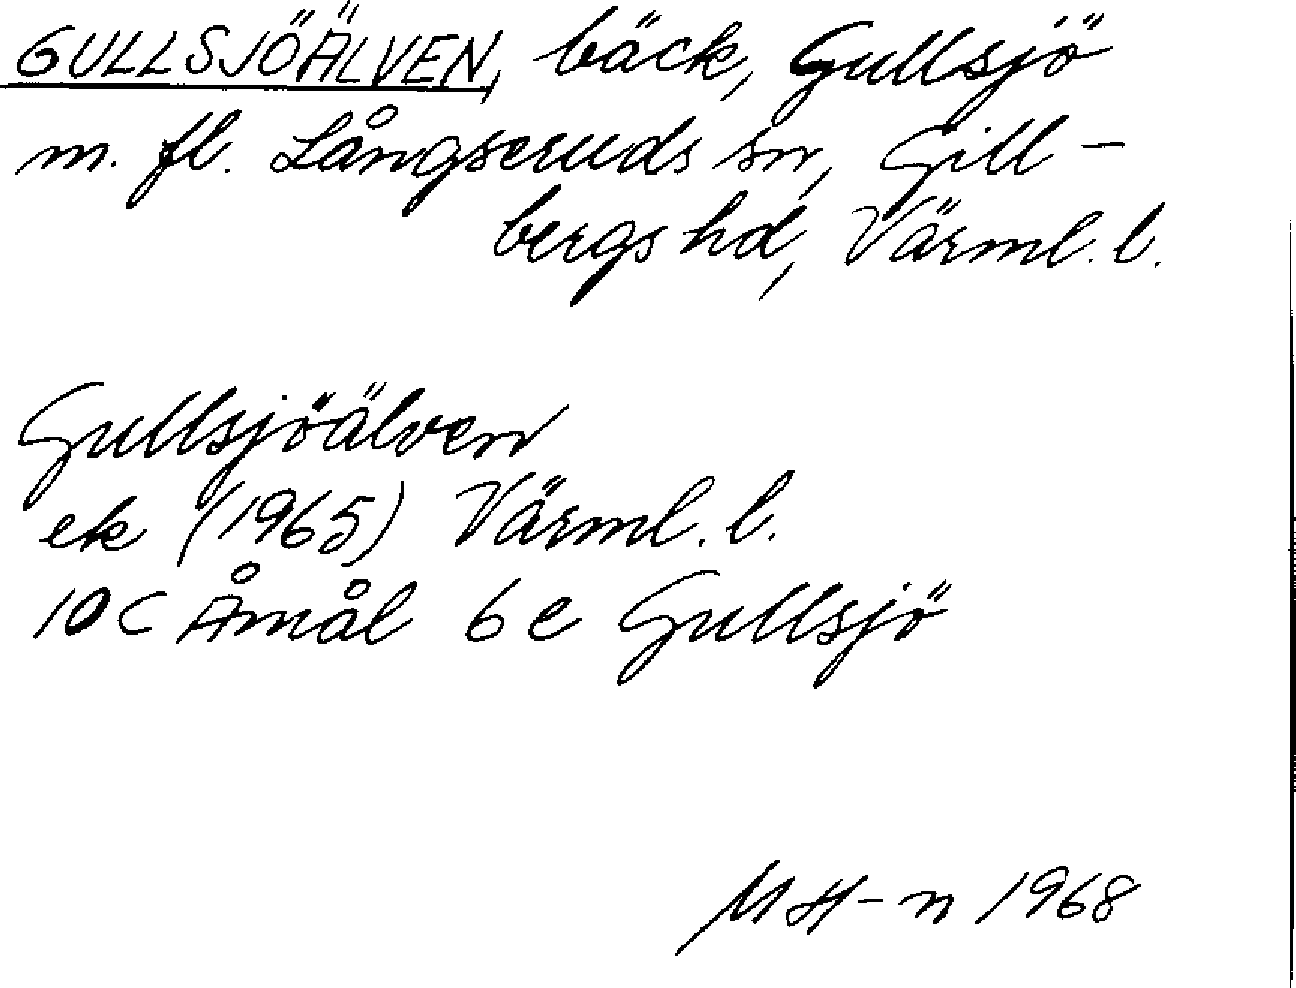 GULLSJÖÄLVEN, bäck, Gullsjö
m. fl. Långseruds sn, Gill-
bergs hd, Värml. l.
Gullsjöälven
ek (1965) Värml. l.
10 C Åmål 6 e Gullsjö
MH-n 1968